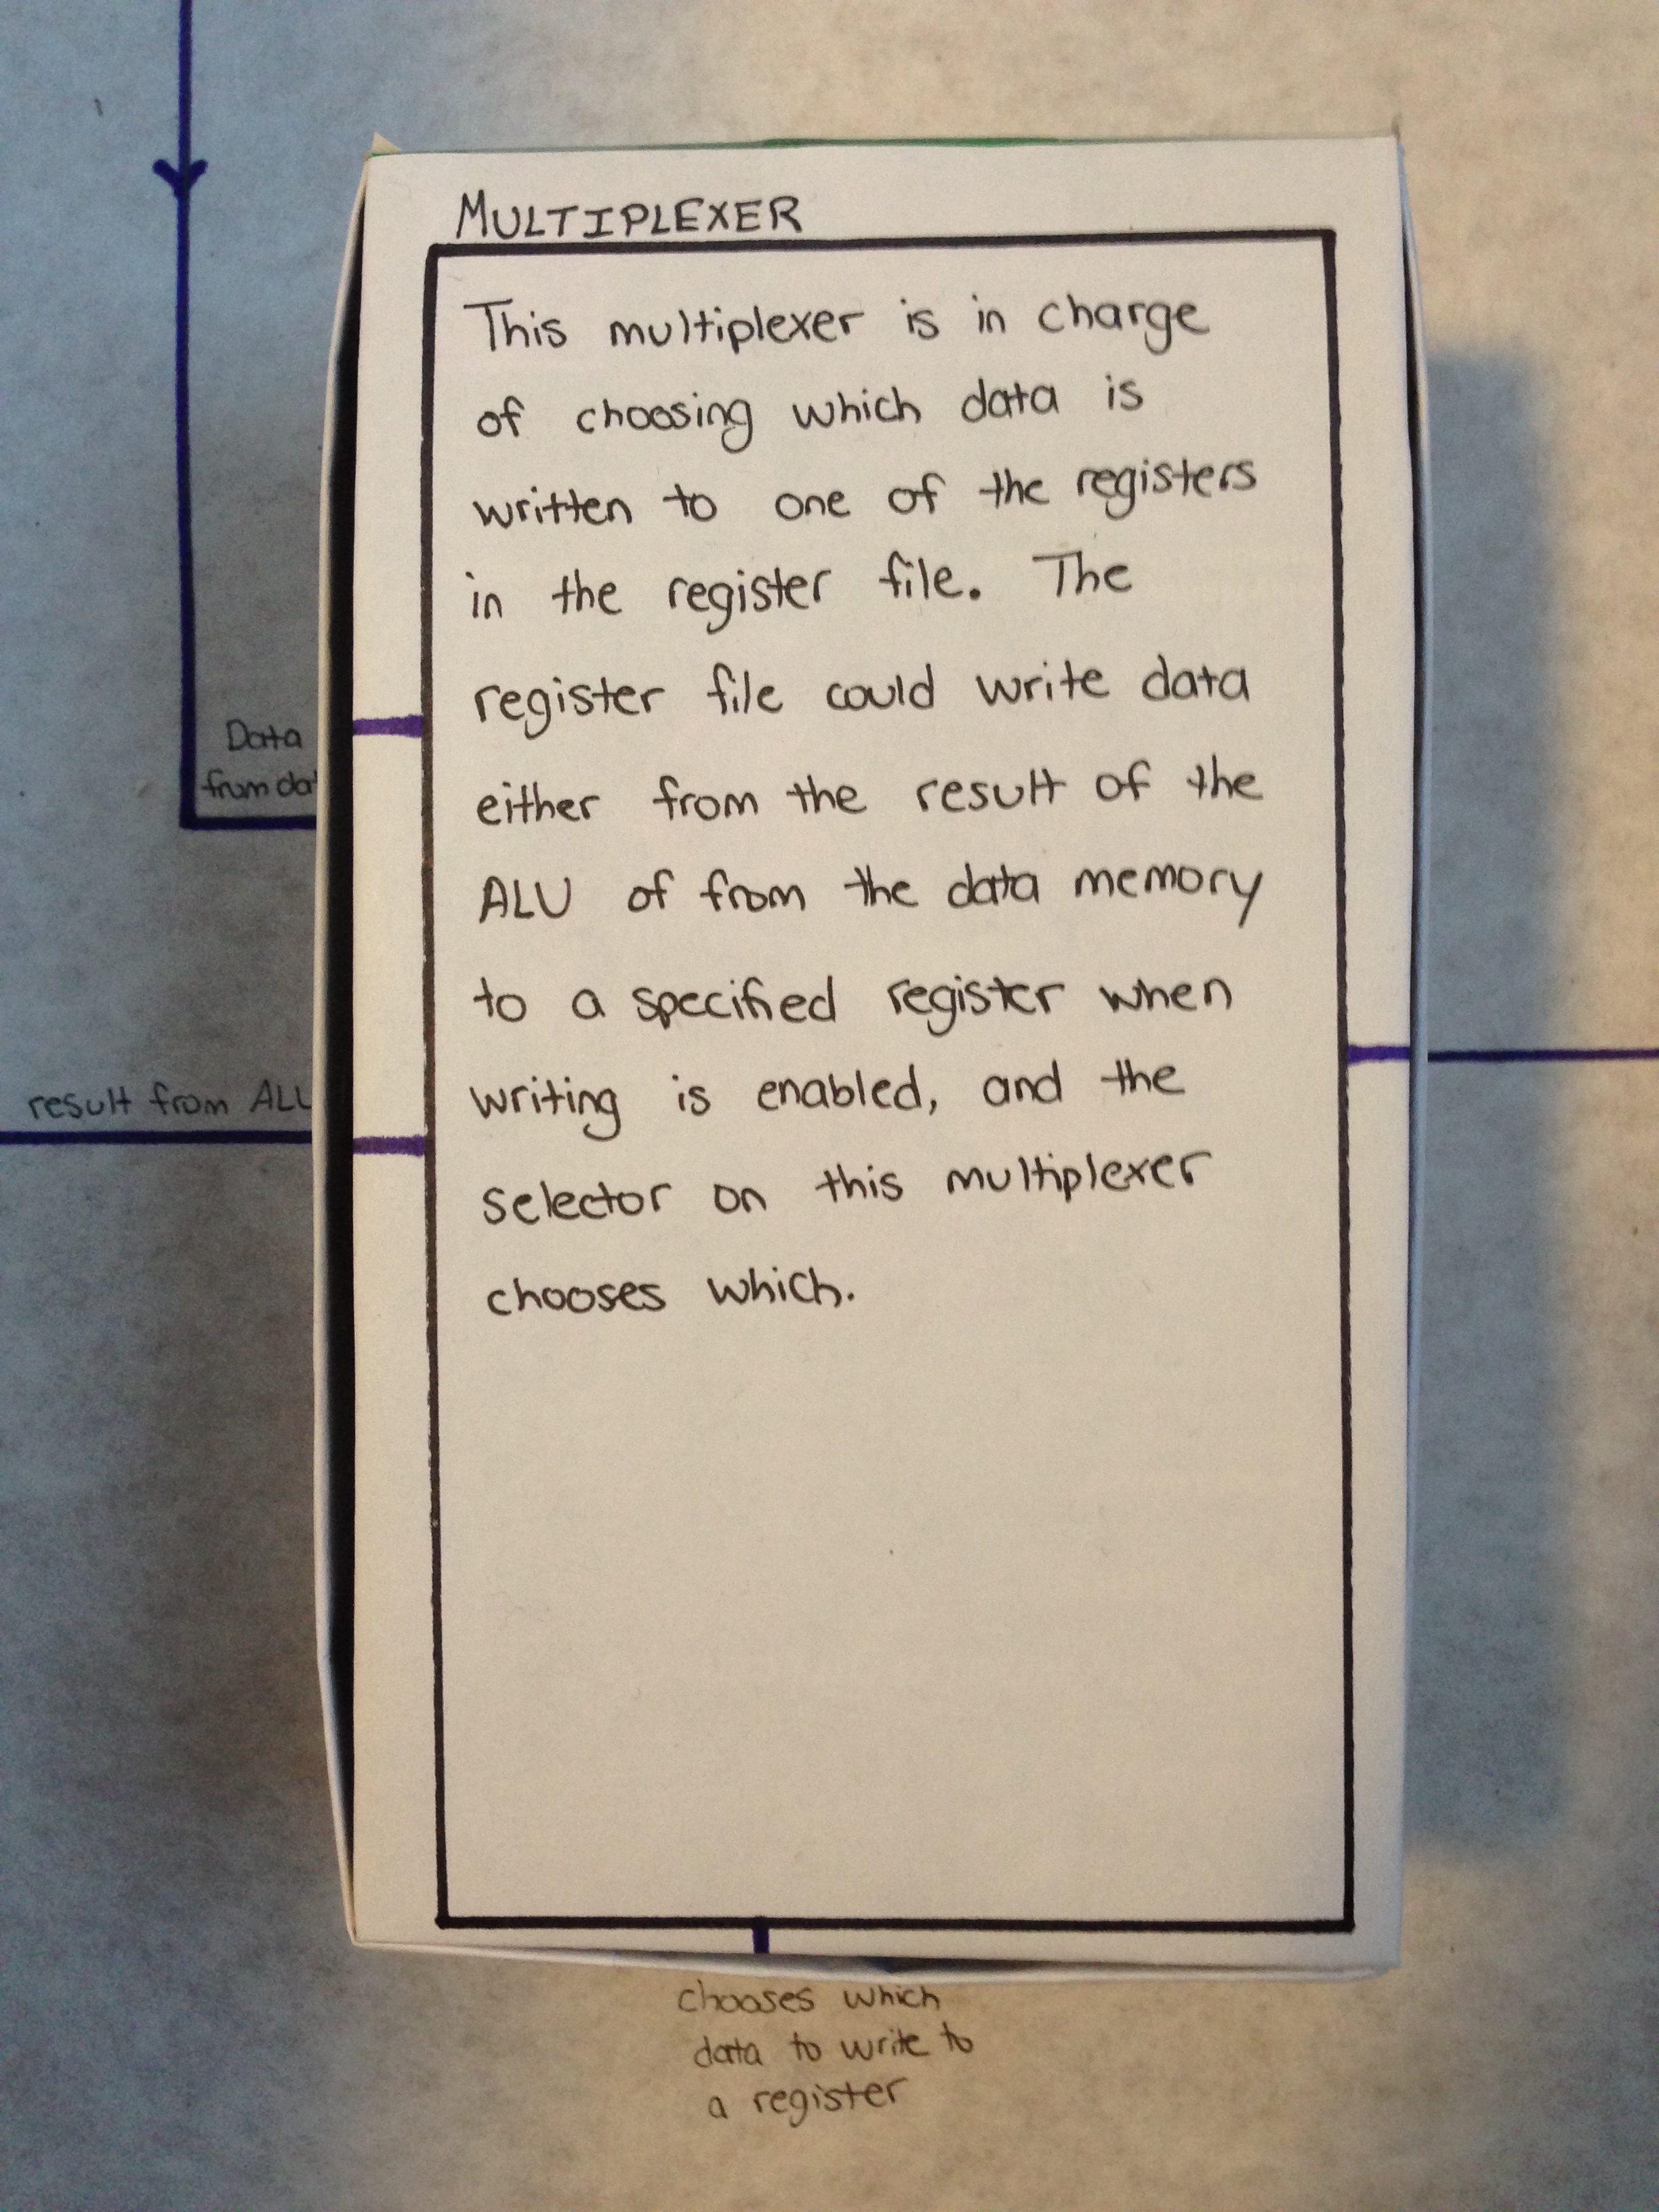 MULTIPLEXER
This multiplexer is in charge
of choosing which data is
written to one of the registers
in the register file. The
register file could write data
either from the result of the
ALU of from the data memory
to a specified register when
writing is enabled, and the
selector on this multiplexer
chooses which.
Data
from
result from ALU
chooses which
data to write to
a register